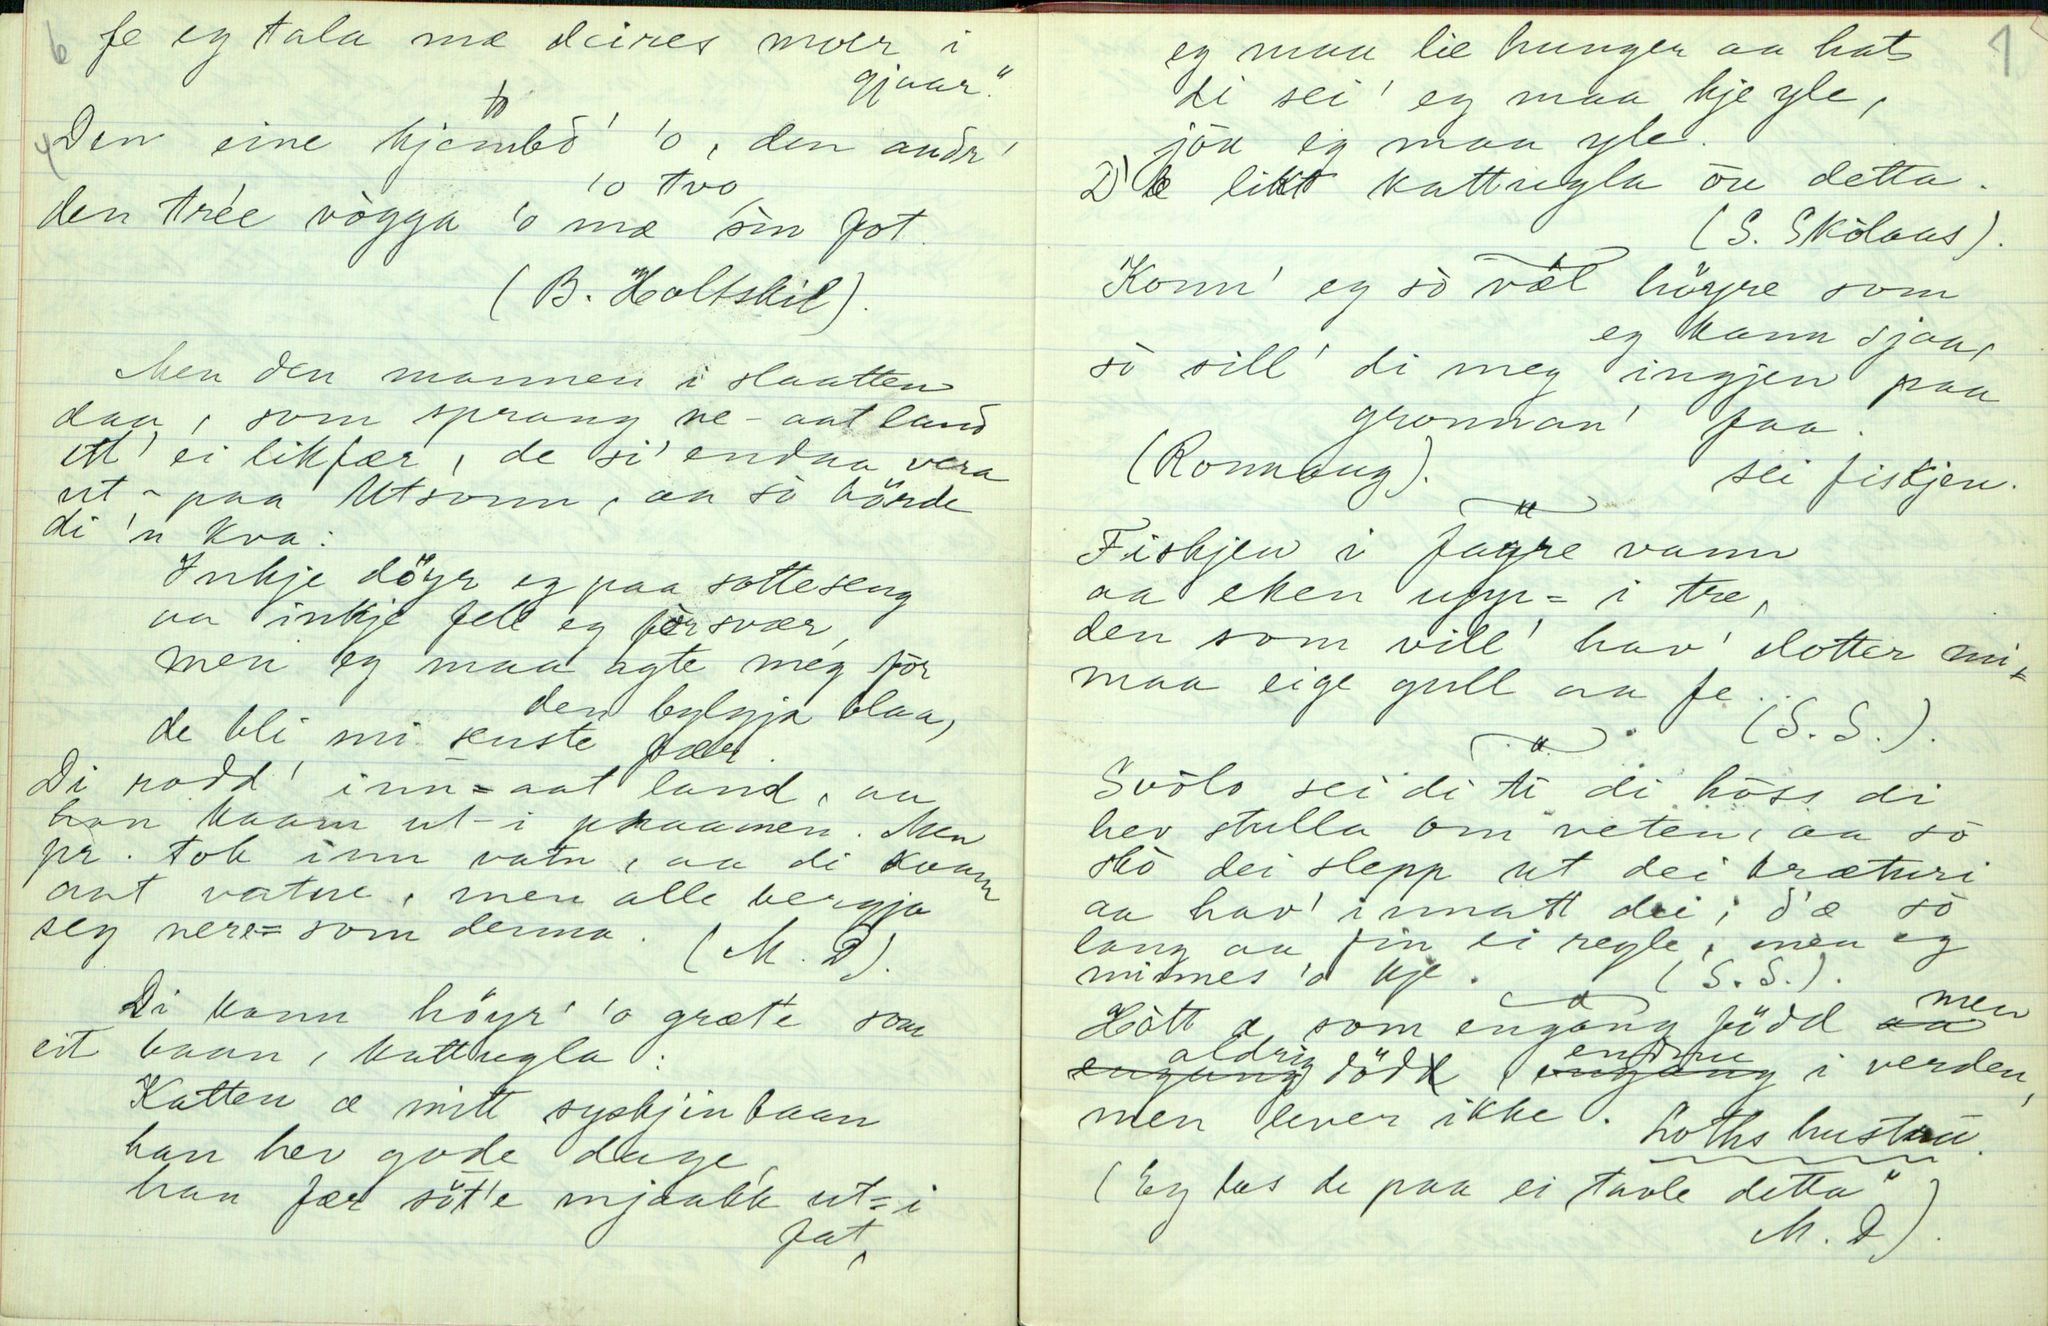 6
fe eg tala mæ deires moer i
gjaar."
Den eine kjembd' 'o, den andr'
'o tvo,
den trée vògga 'o mæ sin fot.
(B. Holtskil).
Men den mannen i slaatten
daa, som sprang ne-aat land
ett' ei likfær, de si' endaa vera
ut-paa Utsonn, aa sò hörde
di 'n kva:
Inkje döyr eg paa sotteseng
aa inkje fell eg fòr svær,
men eg maa agte meg fòr
den bylgja blaa,
de bli mi senste fær.
Di rodd' inn=aat land, aa
han kaam ut-i praamen. Men
pr. tok inn vatn, aa di kvam
aat vatne, men alle bergja
seg nere=som denna. (M. D).
Di kann höyr' 'o græte som
eit baan, kattugla:
Katten æ mitt syskjinbaan
han hev gode dage,
han fær söt'e mjaakk ut=i
fat,
7
eg maa lie hunger aa hat
di sei' eg maa kje yle,
jöu eg maa yle.
D'æ likt kattugla öu detta.
(S. Skòlaas).
Konn' eg sò væl höyre som
eg kann sjaa,
sò sill' di meg ingjen paa
gronnan' faa.
(Ronnaug). sei fiskjen.
Fiskjen i fagre vann
aa eken upp=i tre,
den som vill' hav' dotter mi
maa eige gull aa fe.
(S. S.).
Svòlo sei di ti di höss di
hev stulla om veten, aa sò
skò dei slepp ut dei kræturi
aa hav' innatt dei; d'æ sò
lang aa fin ei regle, men eg
minnes 'o kje. (S. S.).
Hòtt æ som engang född aa men
engang aldrig död, engang endnu i verden,
men lever ikke. Loths hustru.
(Eg las de paa ei tavle detta"
M. D).